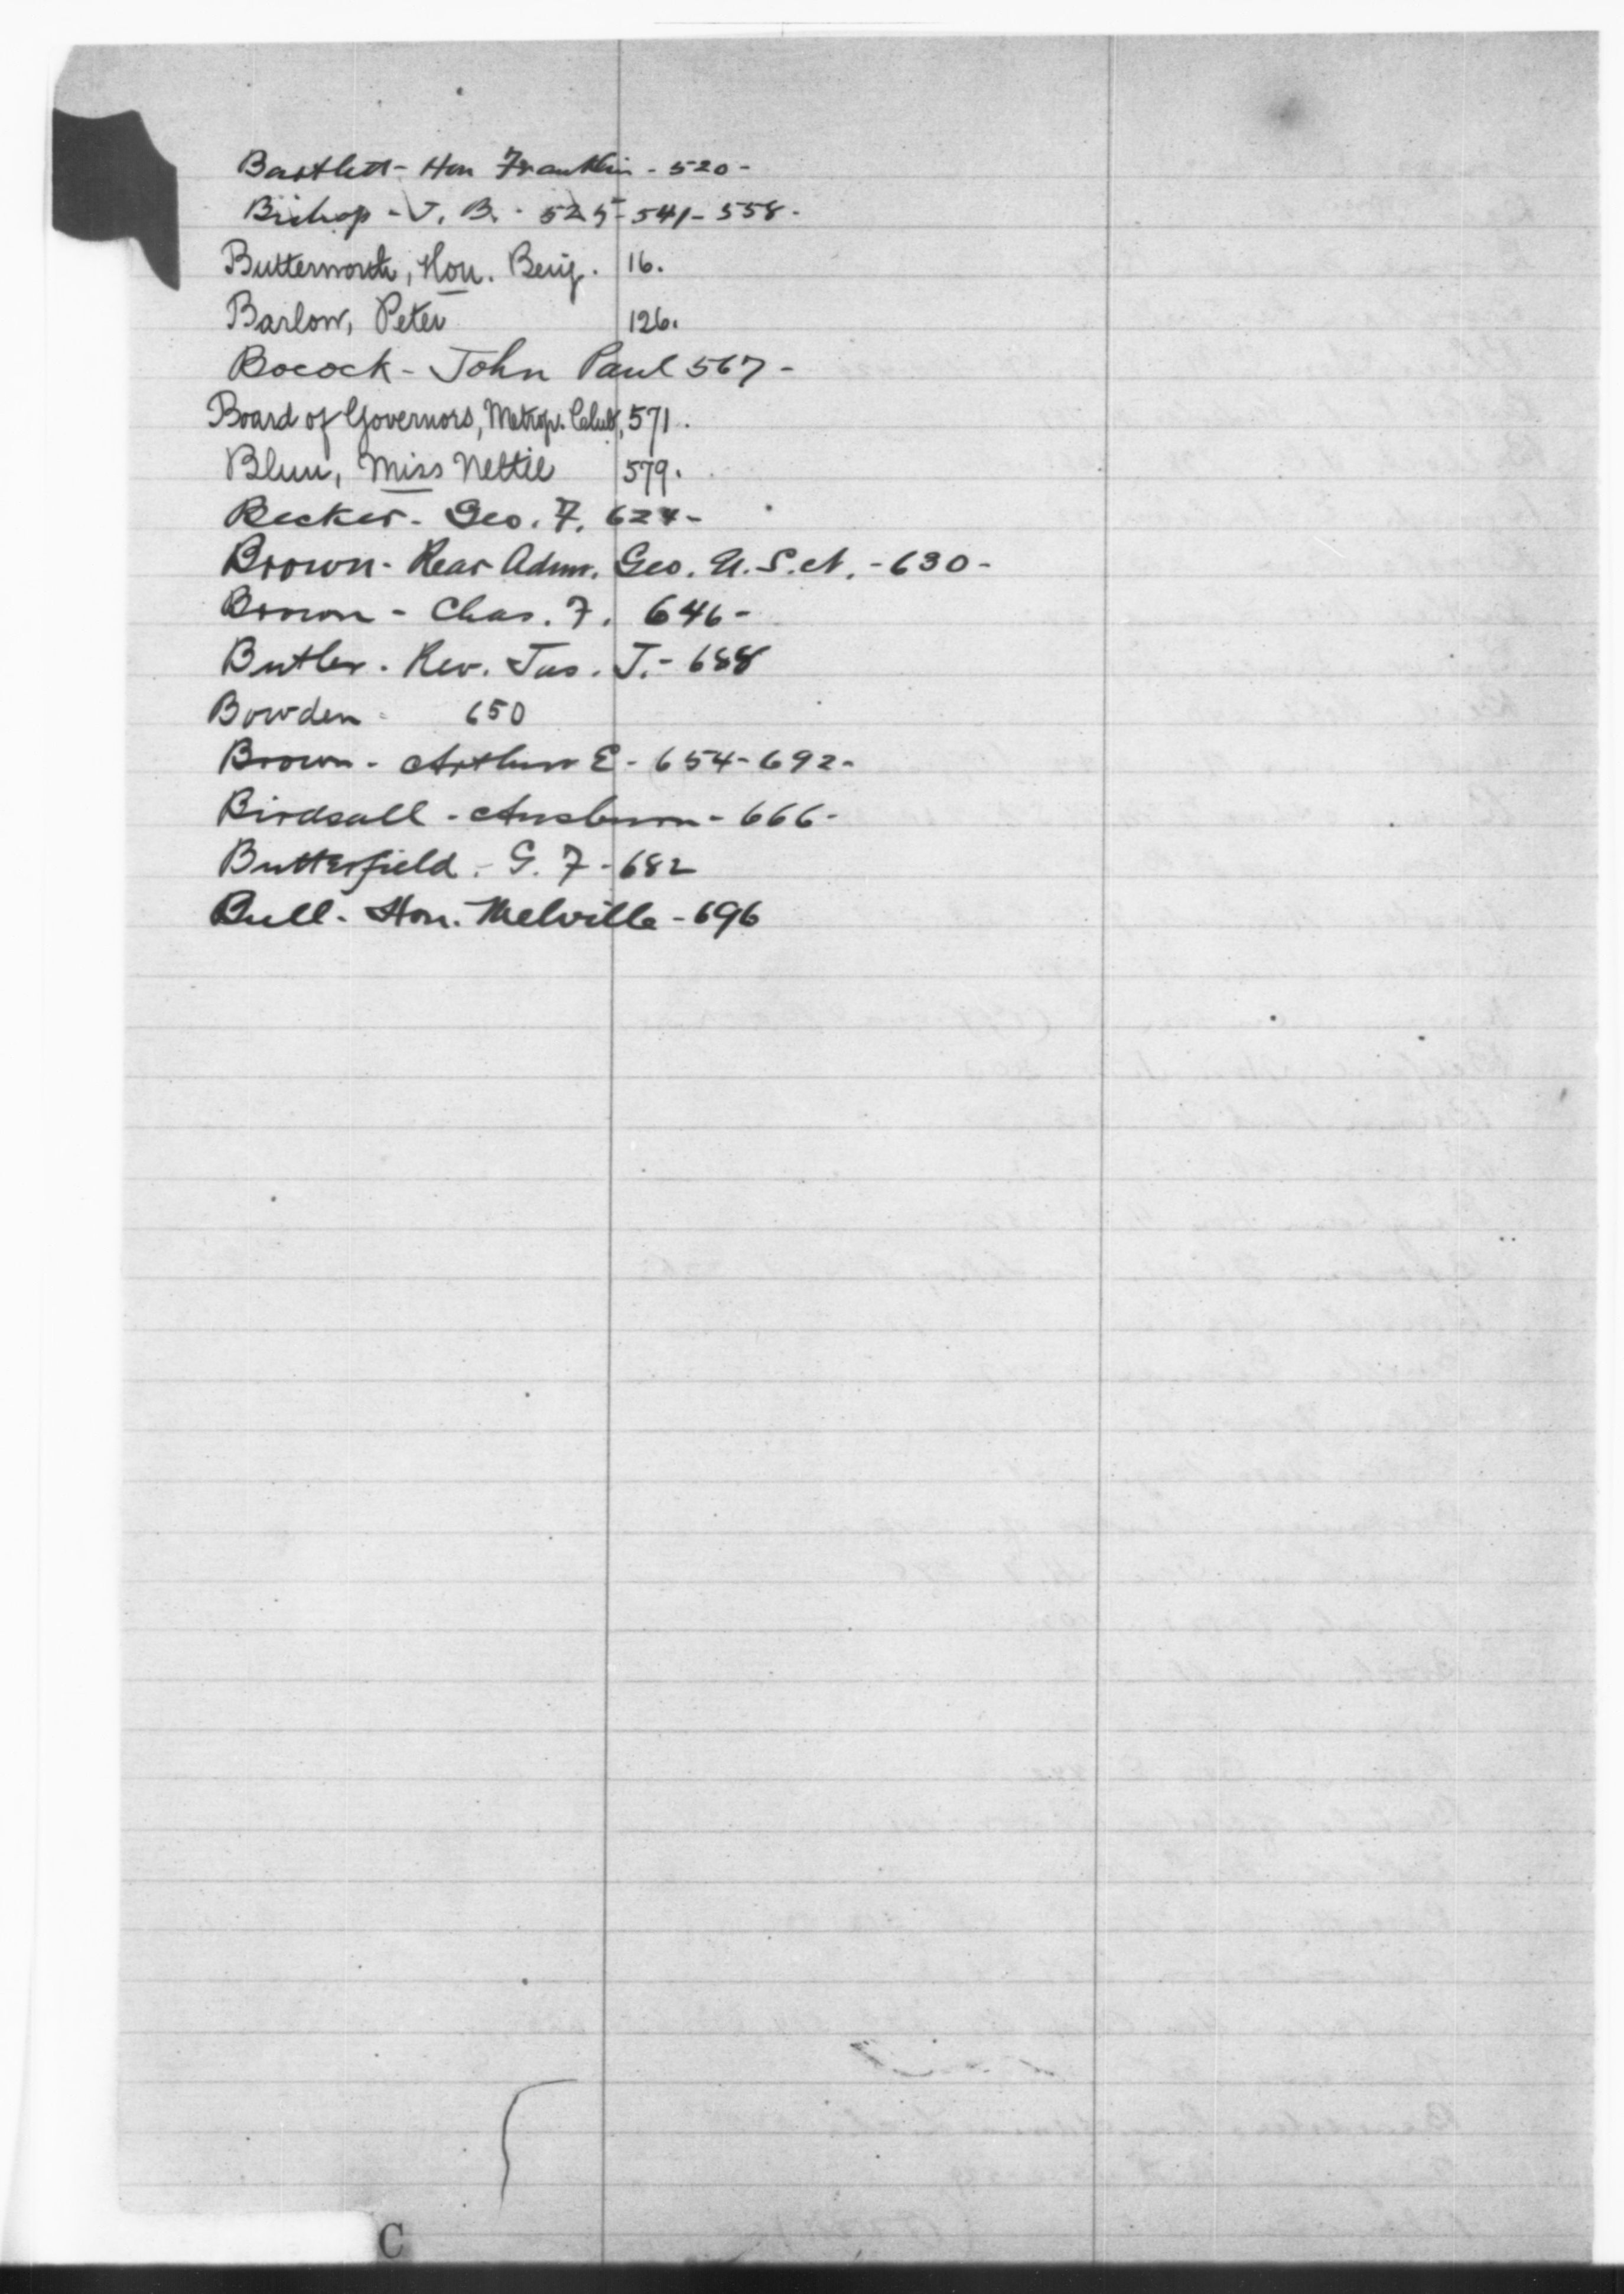 Bartlett - Hon Franklin - 520 -
Bishop - J. B. - 525 - 541 - 558 -
Butterworth, Hon. Benj. 16.
Barlow, Peter 126.
Bocock - John Paul 567 -
Board of Governors, Metrop. Club, 571.
Blun, Miss Nettie 579.
Becker - Geo. F. 624 -
Brown - Rear Adm. Geo. U.S.N. - 630 -
Brown - Chas. F. 646 -
Butler - Rev. Jas. J. - 688
Bowden - 650
Brown - Arthur E - 654 - 692 -
Birdsall - Ausburn - 666 -
Butterfield - G. F - 682
Bull - Hon. Melville - 696
C